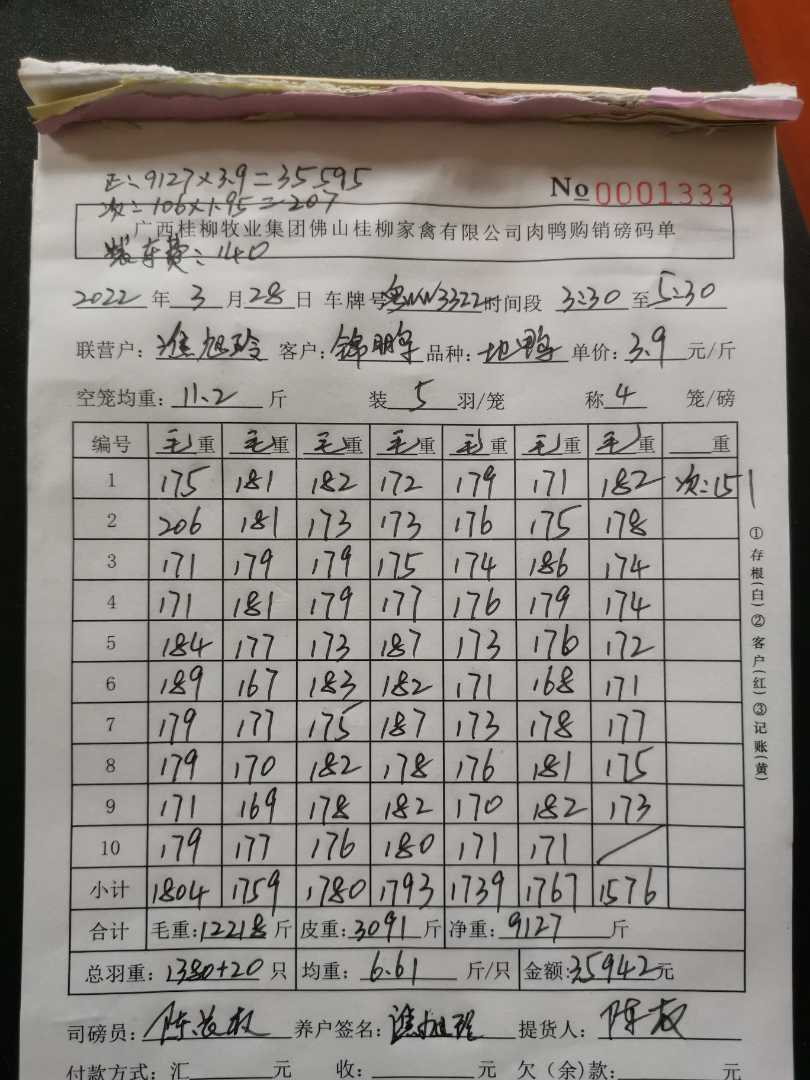 正:9127×3.9=35595
次:106×1.95=207
No 0001333
广西桂柳牧业集团佛山桂柳家禽有限公司肉鸭购销磅码单
装车费:140
2022年3月28日 车牌号 3322 时间段 3:30至5:30
联营户: 客户:锦鹏 品种: 单价:3.9元/斤
空笼均重:11.2斤 装5羽/笼 称4笼/磅
编号 毛重 毛重 毛重 毛重 毛重 毛重 毛重 重
1 175 181 182 172 179 171 182 次:151
2 206 181 173 173 176 175 178
3 171 179 179 175 174 186 174
4 171 181 179 177 176 179 174
5 184 177 173 187 173 176 172
6 189 167 183 182 171 168 171
7 179 177 175 187 173 178 177
8 179 170 182 178 176 181 175
9 171 169 178 182 170 182 173
10 179 177 176 180 171 171
小计 1804 1759 1780 1793 1739 1767 1576
合计 毛重:12218斤 皮重:3091斤 净重:9127斤
总羽重:1380+20只 均重:6.61斤/只 金额:35942元
司磅员:陈 养户签名: 提货人:陈
付款方式:汇 元 收: 元 欠(余)款: 元
①存根(白)②客户(红)③记账(黄)